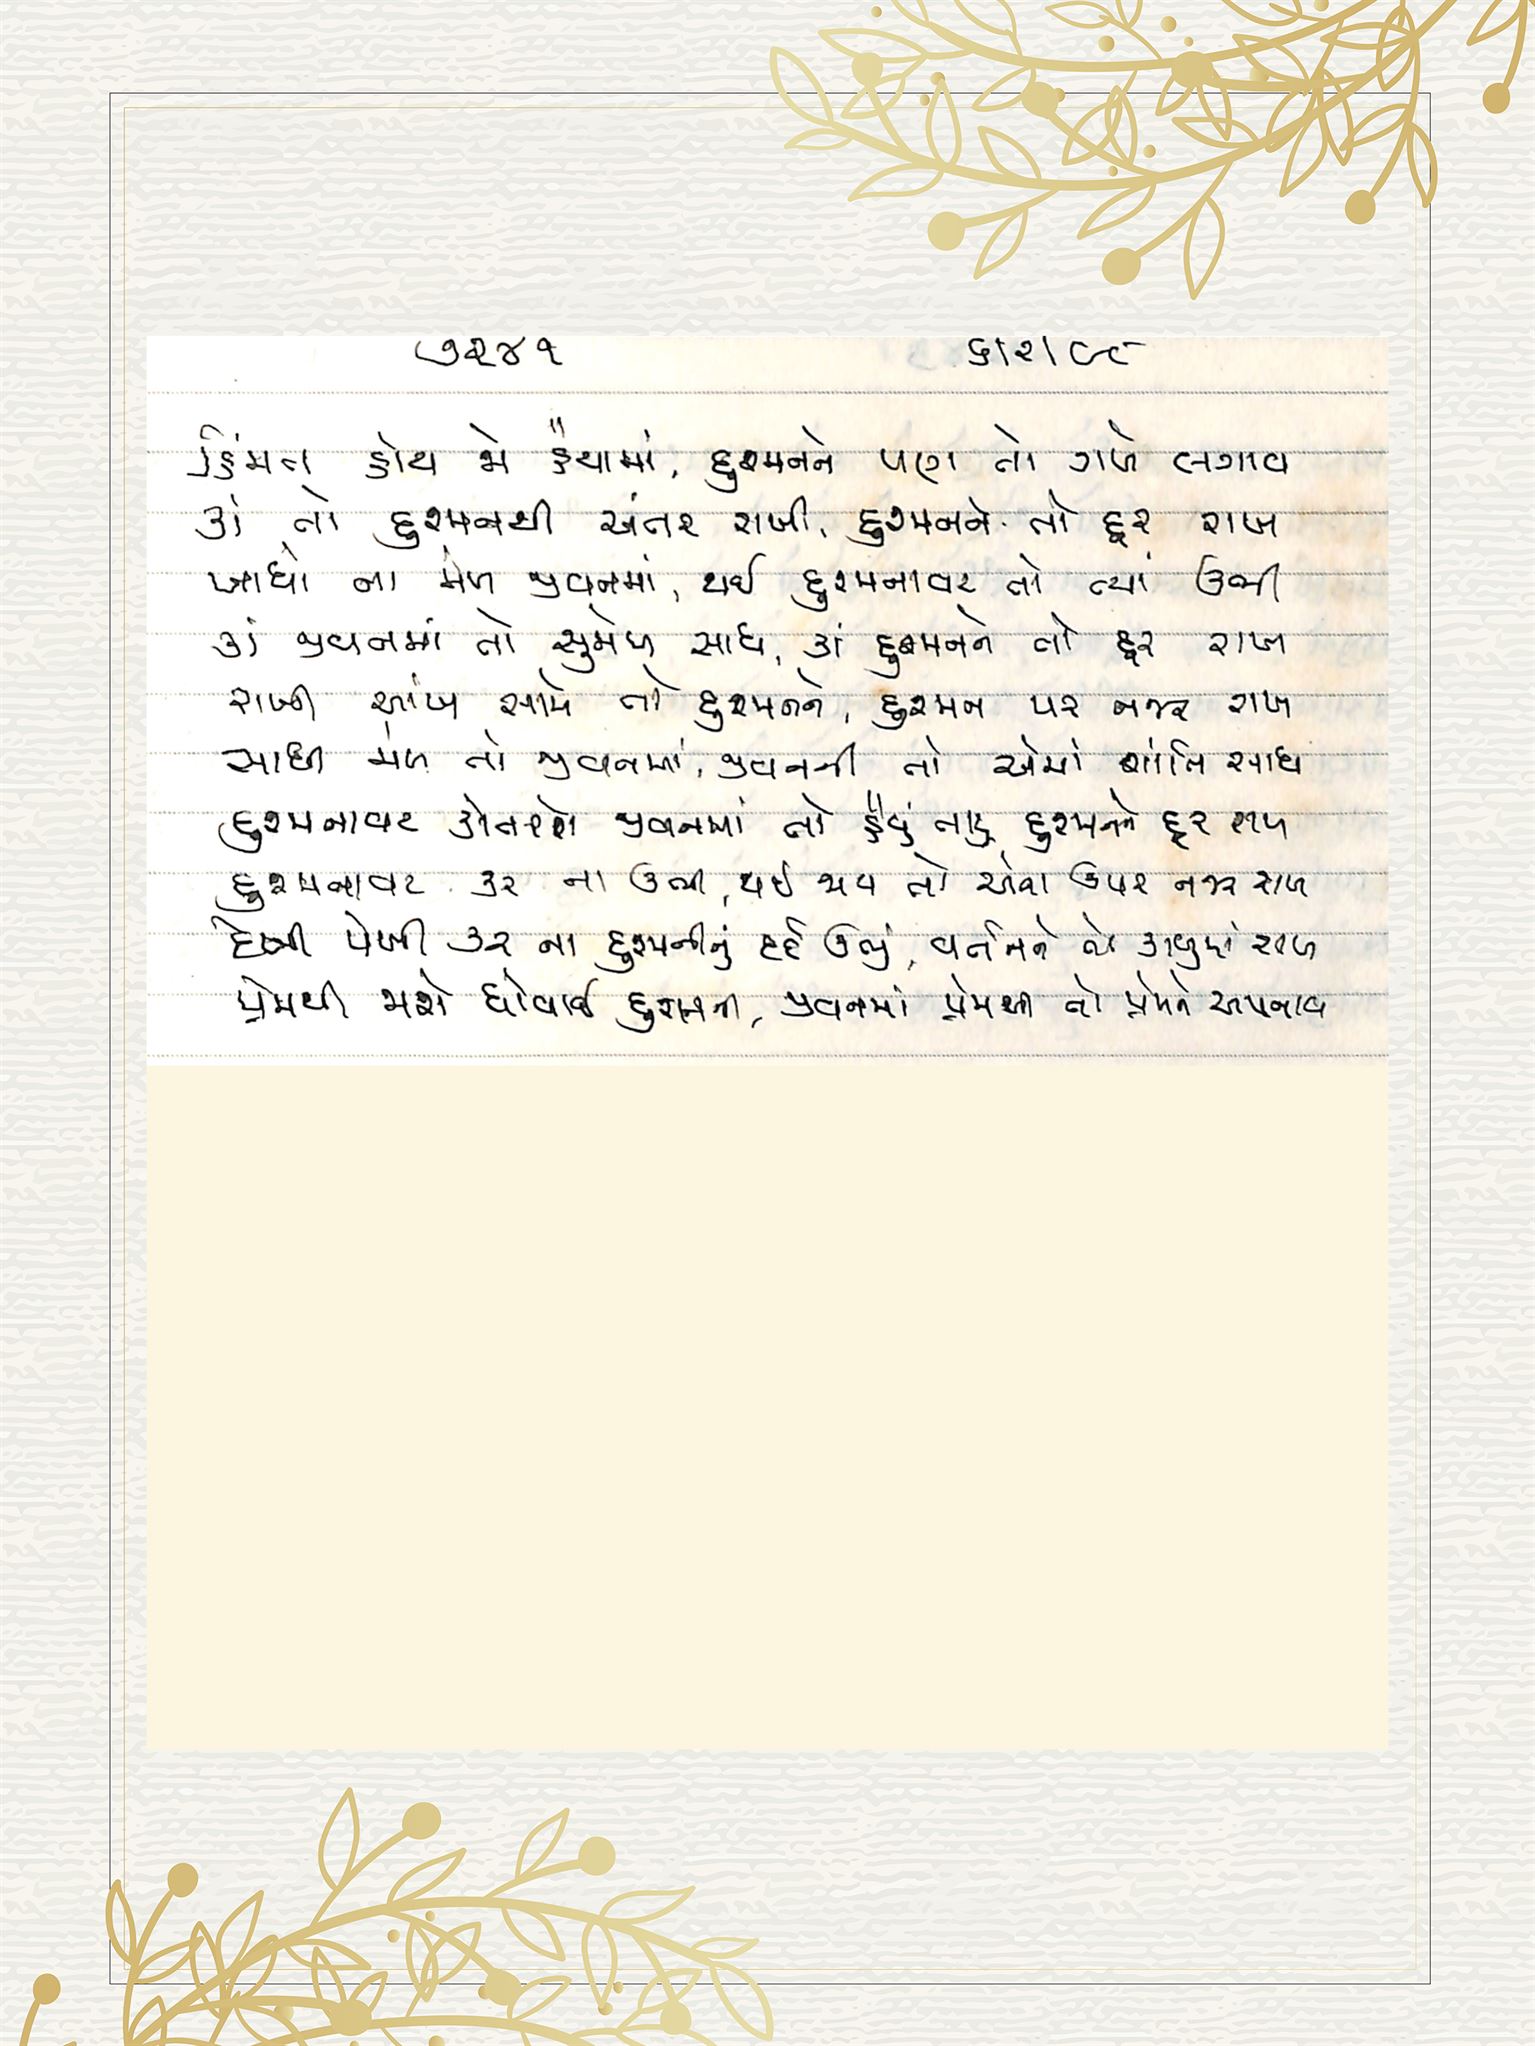 ૭૨૪૧ ૬/૨/૯૮
હિંમત હોય જો હૈયામાં, દુશ્મનને પણ તો ગળે લગાવ
કાં તો દુશ્મનથી અંતર રાખી, દુશ્મનને તો દૂર રાખ
ખાધો ના મેળ જીવનમાં, થઈ દુશ્મનાવટ તો ત્યાં ઉભી
કાં જીવનમાં તો સુમેળ સાધ, કાં દુશ્મનને તો દૂર રાખ
રાખી આંખ સામે તો દુશ્મનને, દુશ્મન પર નજર રાખ
સાધી મેળ તો જીવનમાં, જીવનની તો એમાં શાંતિ સાધ
દુશ્મનાવટ કોતરશે જીવનમાં તો હૈયું તારું દુશ્મનને દૂર રાખ
દુશ્મનાવટ કર ના ઉભી, થઈ જાય તો એના ઉપર નજર રાખ
દેખી પેખી કર ના દુશ્મનીનું દર્દ ઉભું, વર્તનને તો કાબુમાં રાખ
પ્રેમથી જાશે ધોવાઈ દુશ્મની, જીવનમાં પ્રેમથી તો પ્રેમને અપનાવ